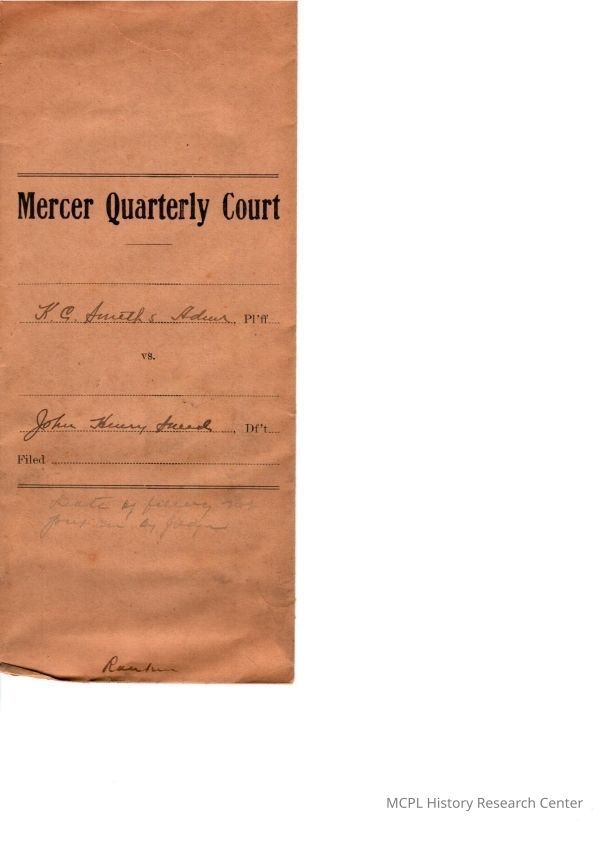 Mercer Quarterly Court
K. C. Smith's Admr, Pl'ff
vs.
John Henry Sneed, Df't
Filed
Date of filing not
put on by Judge
Rankin
MCPL History Research Center